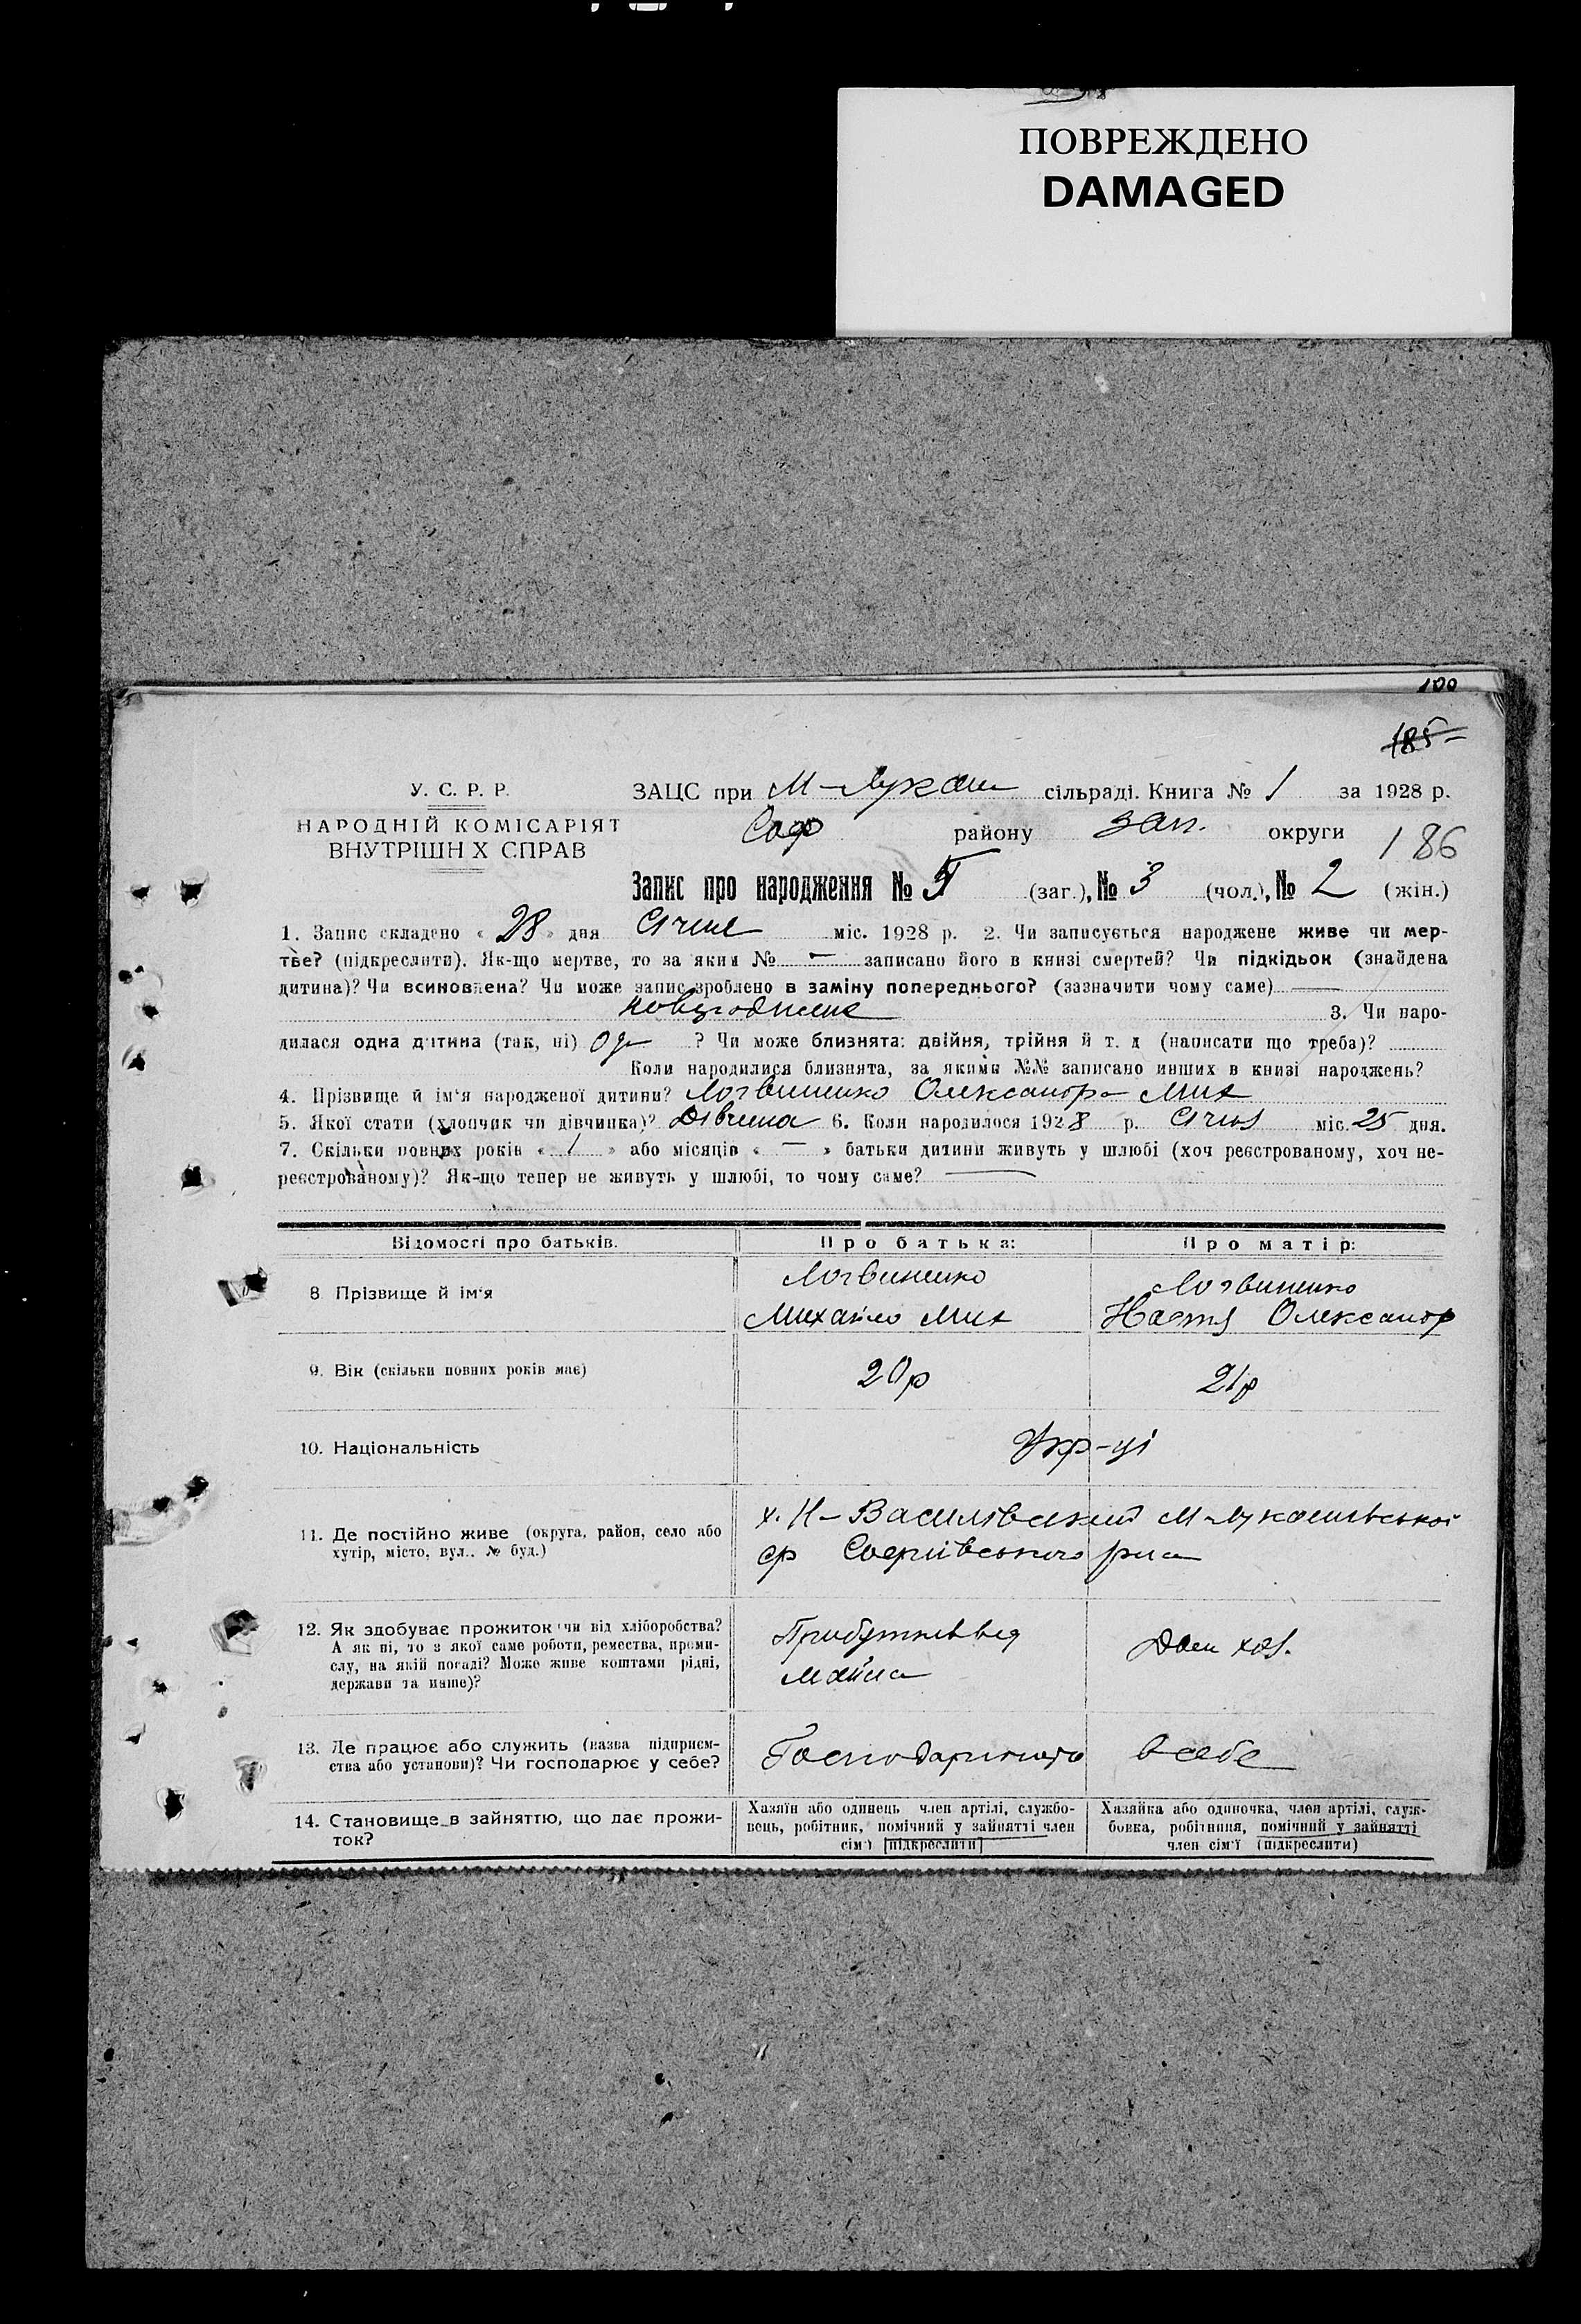 ПОВРЕЖДЕНО
DAMAGED
100
185
У. С. Р. Р.
НАРОДНІЙ КОМІСАРІЯТ
ВНУТРІШН Х СПРАВ
ЗАЦС при М-Лукаш сільраді. Книга № 1 за 1928 р.
Соф району Зап. округи
186
Запис про народження № 5 (заг.), № 3 (чол.), № 2 (жін.)
1. Запис складено « 28 » дня Січне міс. 1928 р. 2. Чи записується народжене живе чи мер-
тве? (підкреслити). Як-що мертве, то за яким № — записано його в книзі смертей? Чи підкідьок (знайдена
дитина)? Чи всиновлена? Чи може запис зроблено в заміну попереднього? (зазначити чому саме) —
3. Чи наро-
дилася одна дитина (так, ні) од ? Чи може близнята: двійня, трійня й т. д (написати що треба)?
Коли народилися близнята, за якими №№ записано инших в книзі народжень?
4. Прізвище й ім'я народженої дитини? Логвиненко Олександра Мих
5. Якої стати (хлопчик чи дівчинка)? Дівчина 6. Коли народилося 1928 р. Січня міс. 25 дня.
7. Скільки повних років « 1 » або місяців « — » батьки дитини живуть у шлюбі (хоч реєстрованому, хоч не-
реєстрованому)? Як-що тепер не живуть у шлюбі, то чому саме? —
Відомості про батьків.
Про батька:
Про матір:
8 Прізвище й ім'я
Логвиненко
Михайло Мих
Логвиненко
Настя Олександр
9. Вік (скільки повних років має)
20р
21р
10. Національність
Укр-ці
11. Де постійно живе (округа, район, село або
хутір, місто, вул., № буд.)
х. Н-Василівський М-Лукашівської
ср Софіївського р-на
12. Як здобуває прожиток чи від хліборобства?
А як ні, то з якої саме роботи, ремества, проми-
слу, на якій посаді? Може живе коштами рідні,
держави та инше)?
майна
Дом хоз.
13. Де працює або служить (назва підприєм-
ства або установи)? Чи господарює у себе?
в себе
14. Становище в зайняттю, що дає прожи-
ток?
Хазяїн або одинець член артілі, службо-
вець, робітник, помічний у зайнятті член
сім'ї (підкреслити)
Хазяйка або одиночка, член артілі, служ-
бовка, робітниця, помічний у зайнятті
член сім'ї (підкреслити)